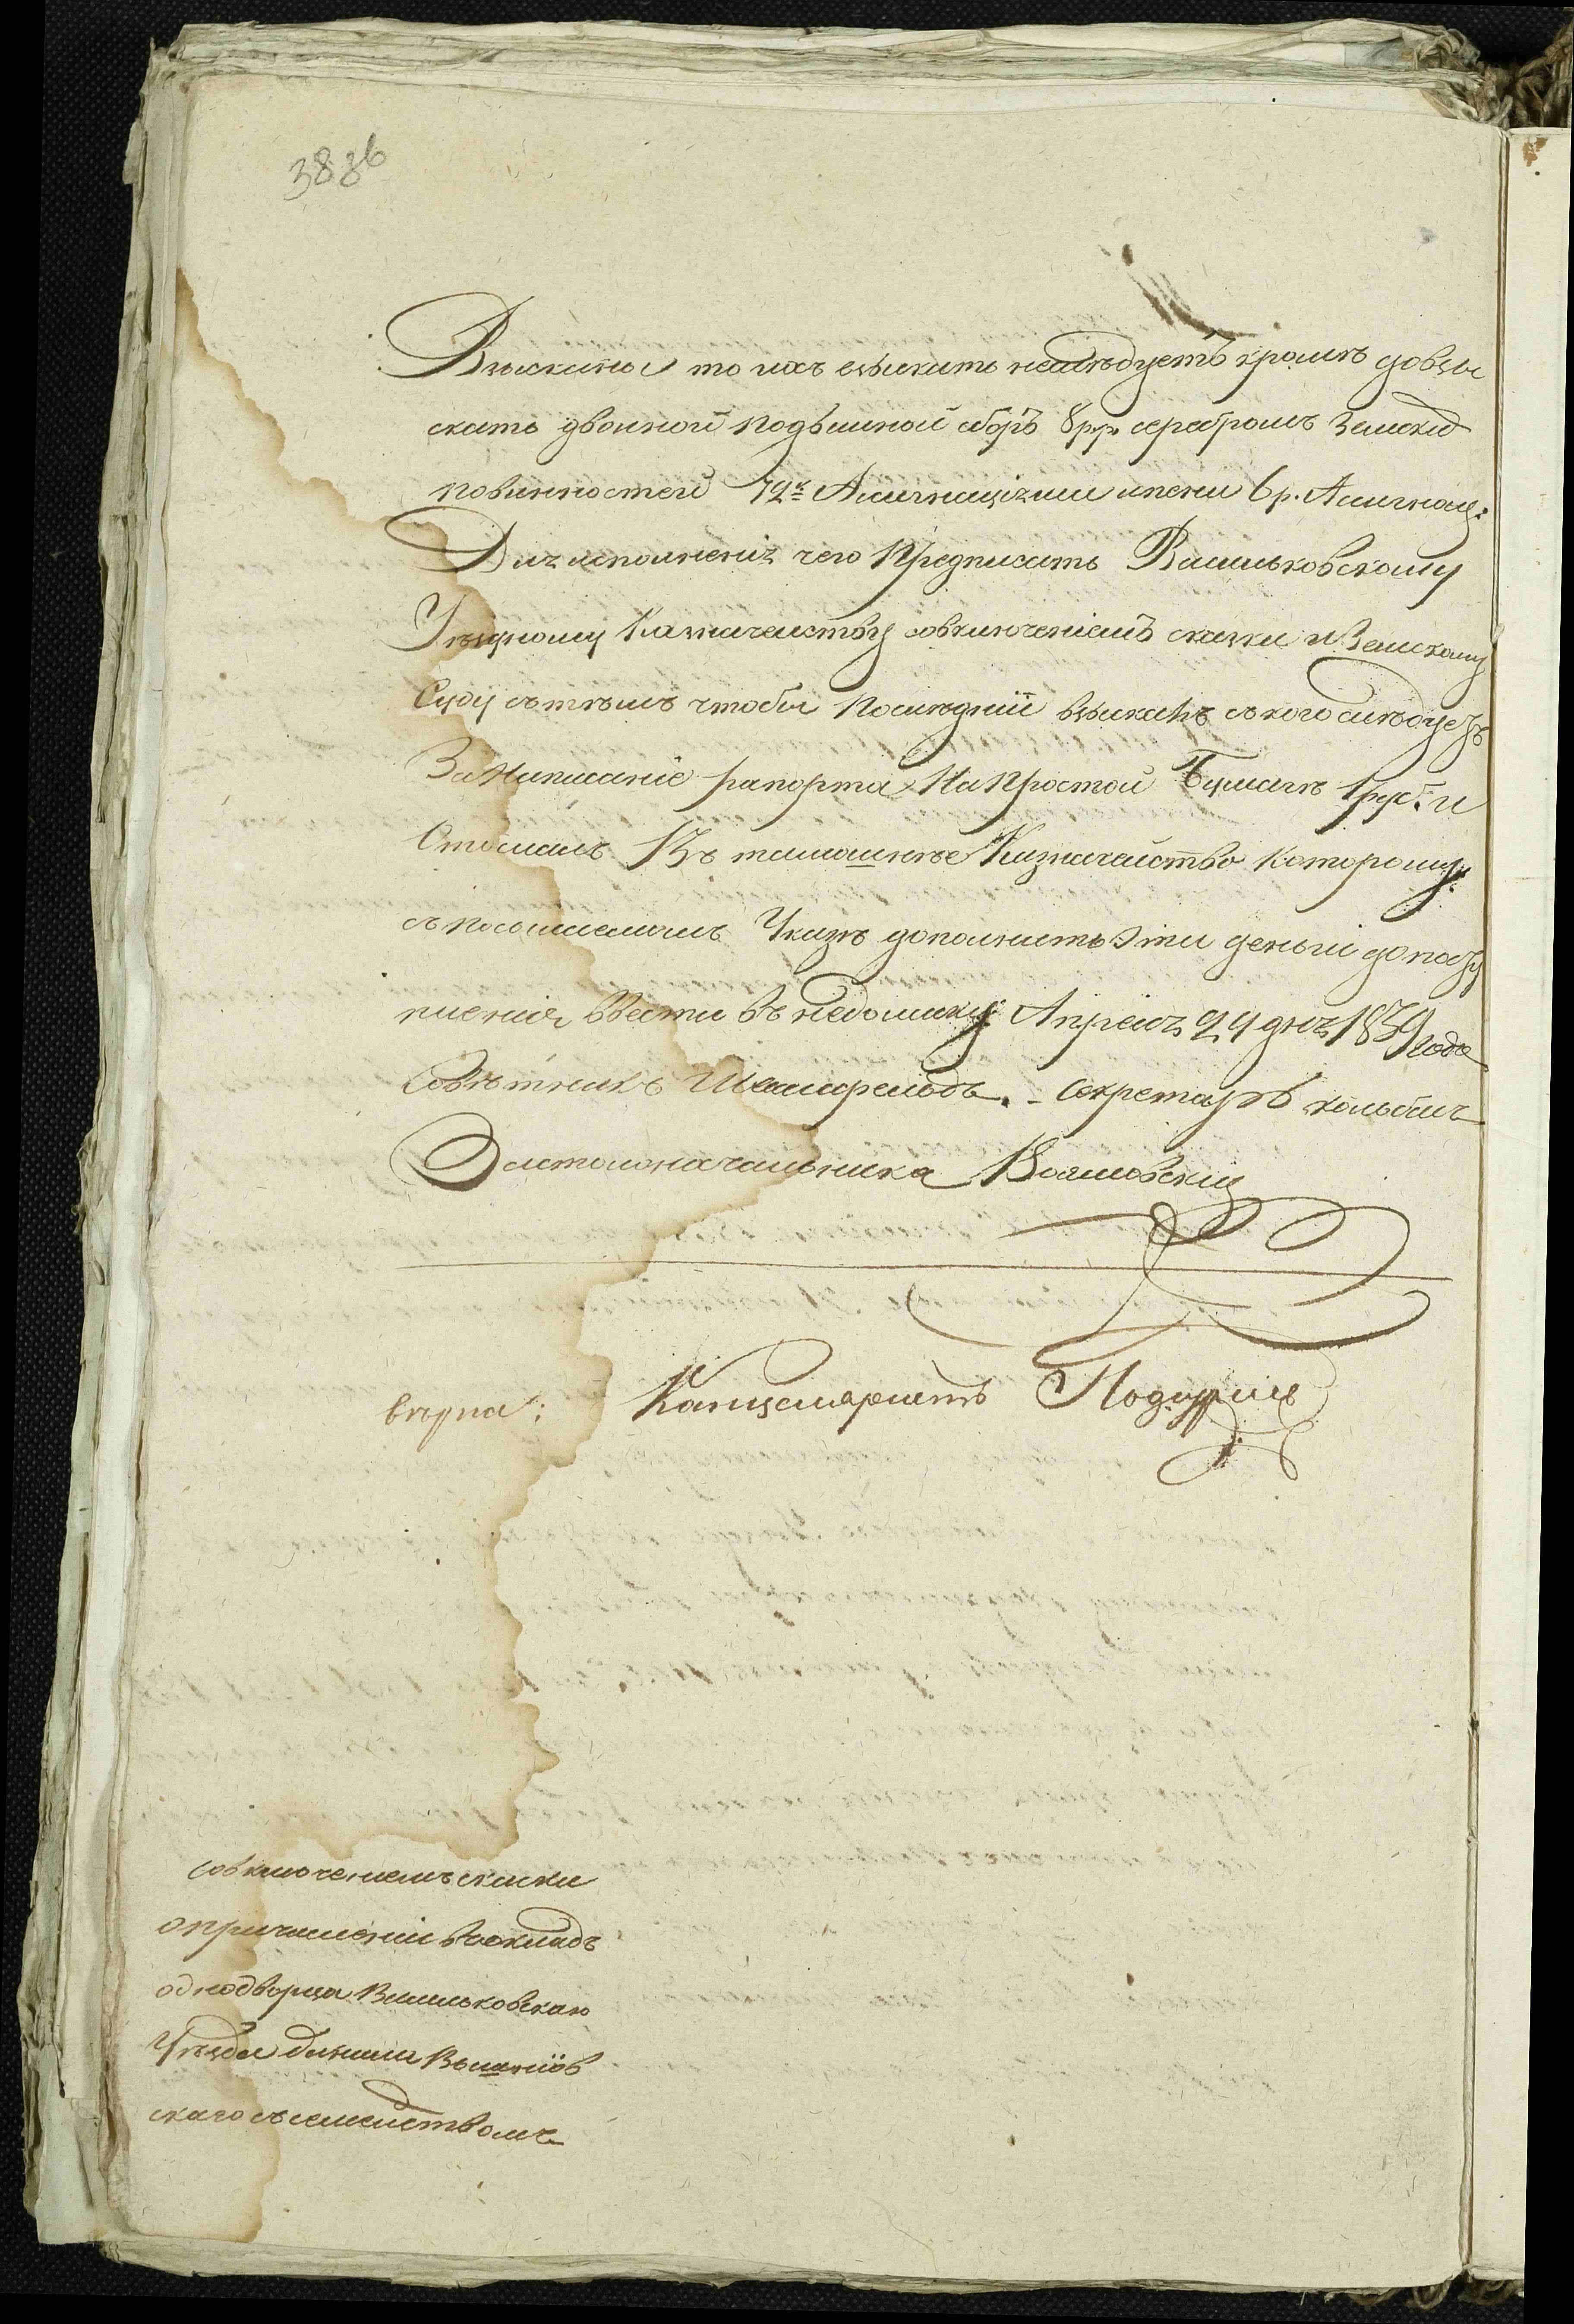 388б
Взыскано то ихъ взыскать неслѣдуетъ кромѣ довзы
скать двойной подымной сборъ 8 р.р. серебромъ земскихъ
повинностей 72к Ассигнаціями ипени 6 р. Ассигнац:
Для исполненія чего Предписать Васильковскому
Уѣздному Казначейству совключеніемъ сказки и Земскому
Суду сътѣмъ чтобы Послѣдній взыскалъ ского слѣдуетъ
За Написаніе рапорта На Простой Бумагѣ 1 руб. и
Отослалъ Въ тамошнее Казначейство которому
дополнить Эти деньги допосту
пленія Ввести Въ недоимку Апреля 24 дня 1839 года
Совѣтникъ Секретарь
За столоначальника
вѣрна: Канцеляристъ
совключениемъ сказки
опричислении въ окладъ
однодворца Васильковскаго
Уѣзда
скаго съ семействомъ